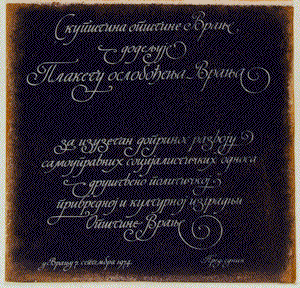 Скупштина општине Врање
додељује
Плакету ослобођења Врања
за изузетан допринос развоју
самоуправних социјалистичких односа
друштвено политичкој
привредној и културној изградњи
Општине Врање
у Врању 7. септембра 1974.
Председник